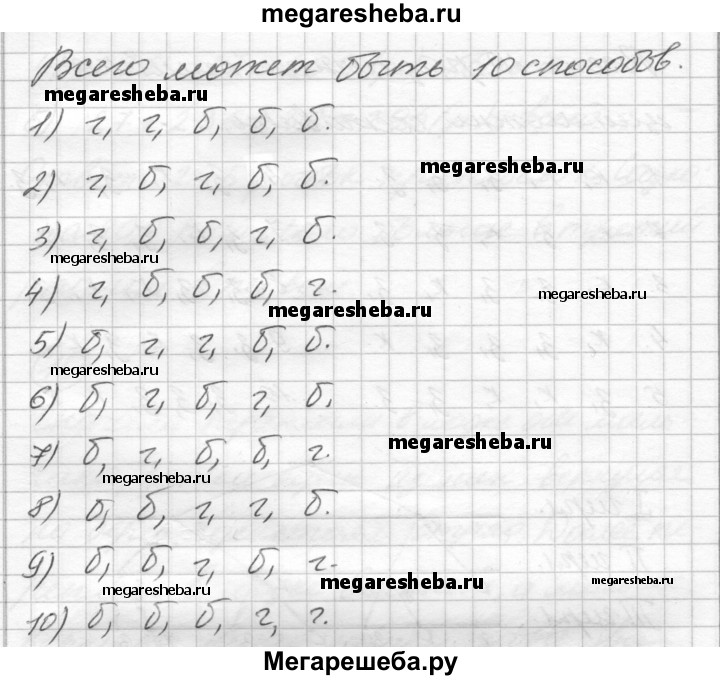 megaresheba.ru
Всего может быть 10 способов.
megaresheba.ru
1) г, г, б, б, б.
megaresheba.ru
2) г, б, г, б, б.
3) г, б, б, г, б.
megaresheba.ru
4) г, б, б, б, г.
megaresheba.ru
megaresheba.ru
5) б, г, г, б, б.
megaresheba.ru
6) б, г, б, г, б,
megaresheba.ru
7) б, г, б, б, г.
megaresheba.ru
8) б, б, г, г, б.
9) б, б, г, б, г.
megaresheba.ru
megaresheba.ru
megaresheba.ru
10) б, б, б, г, г.
Мегарешеба.ру